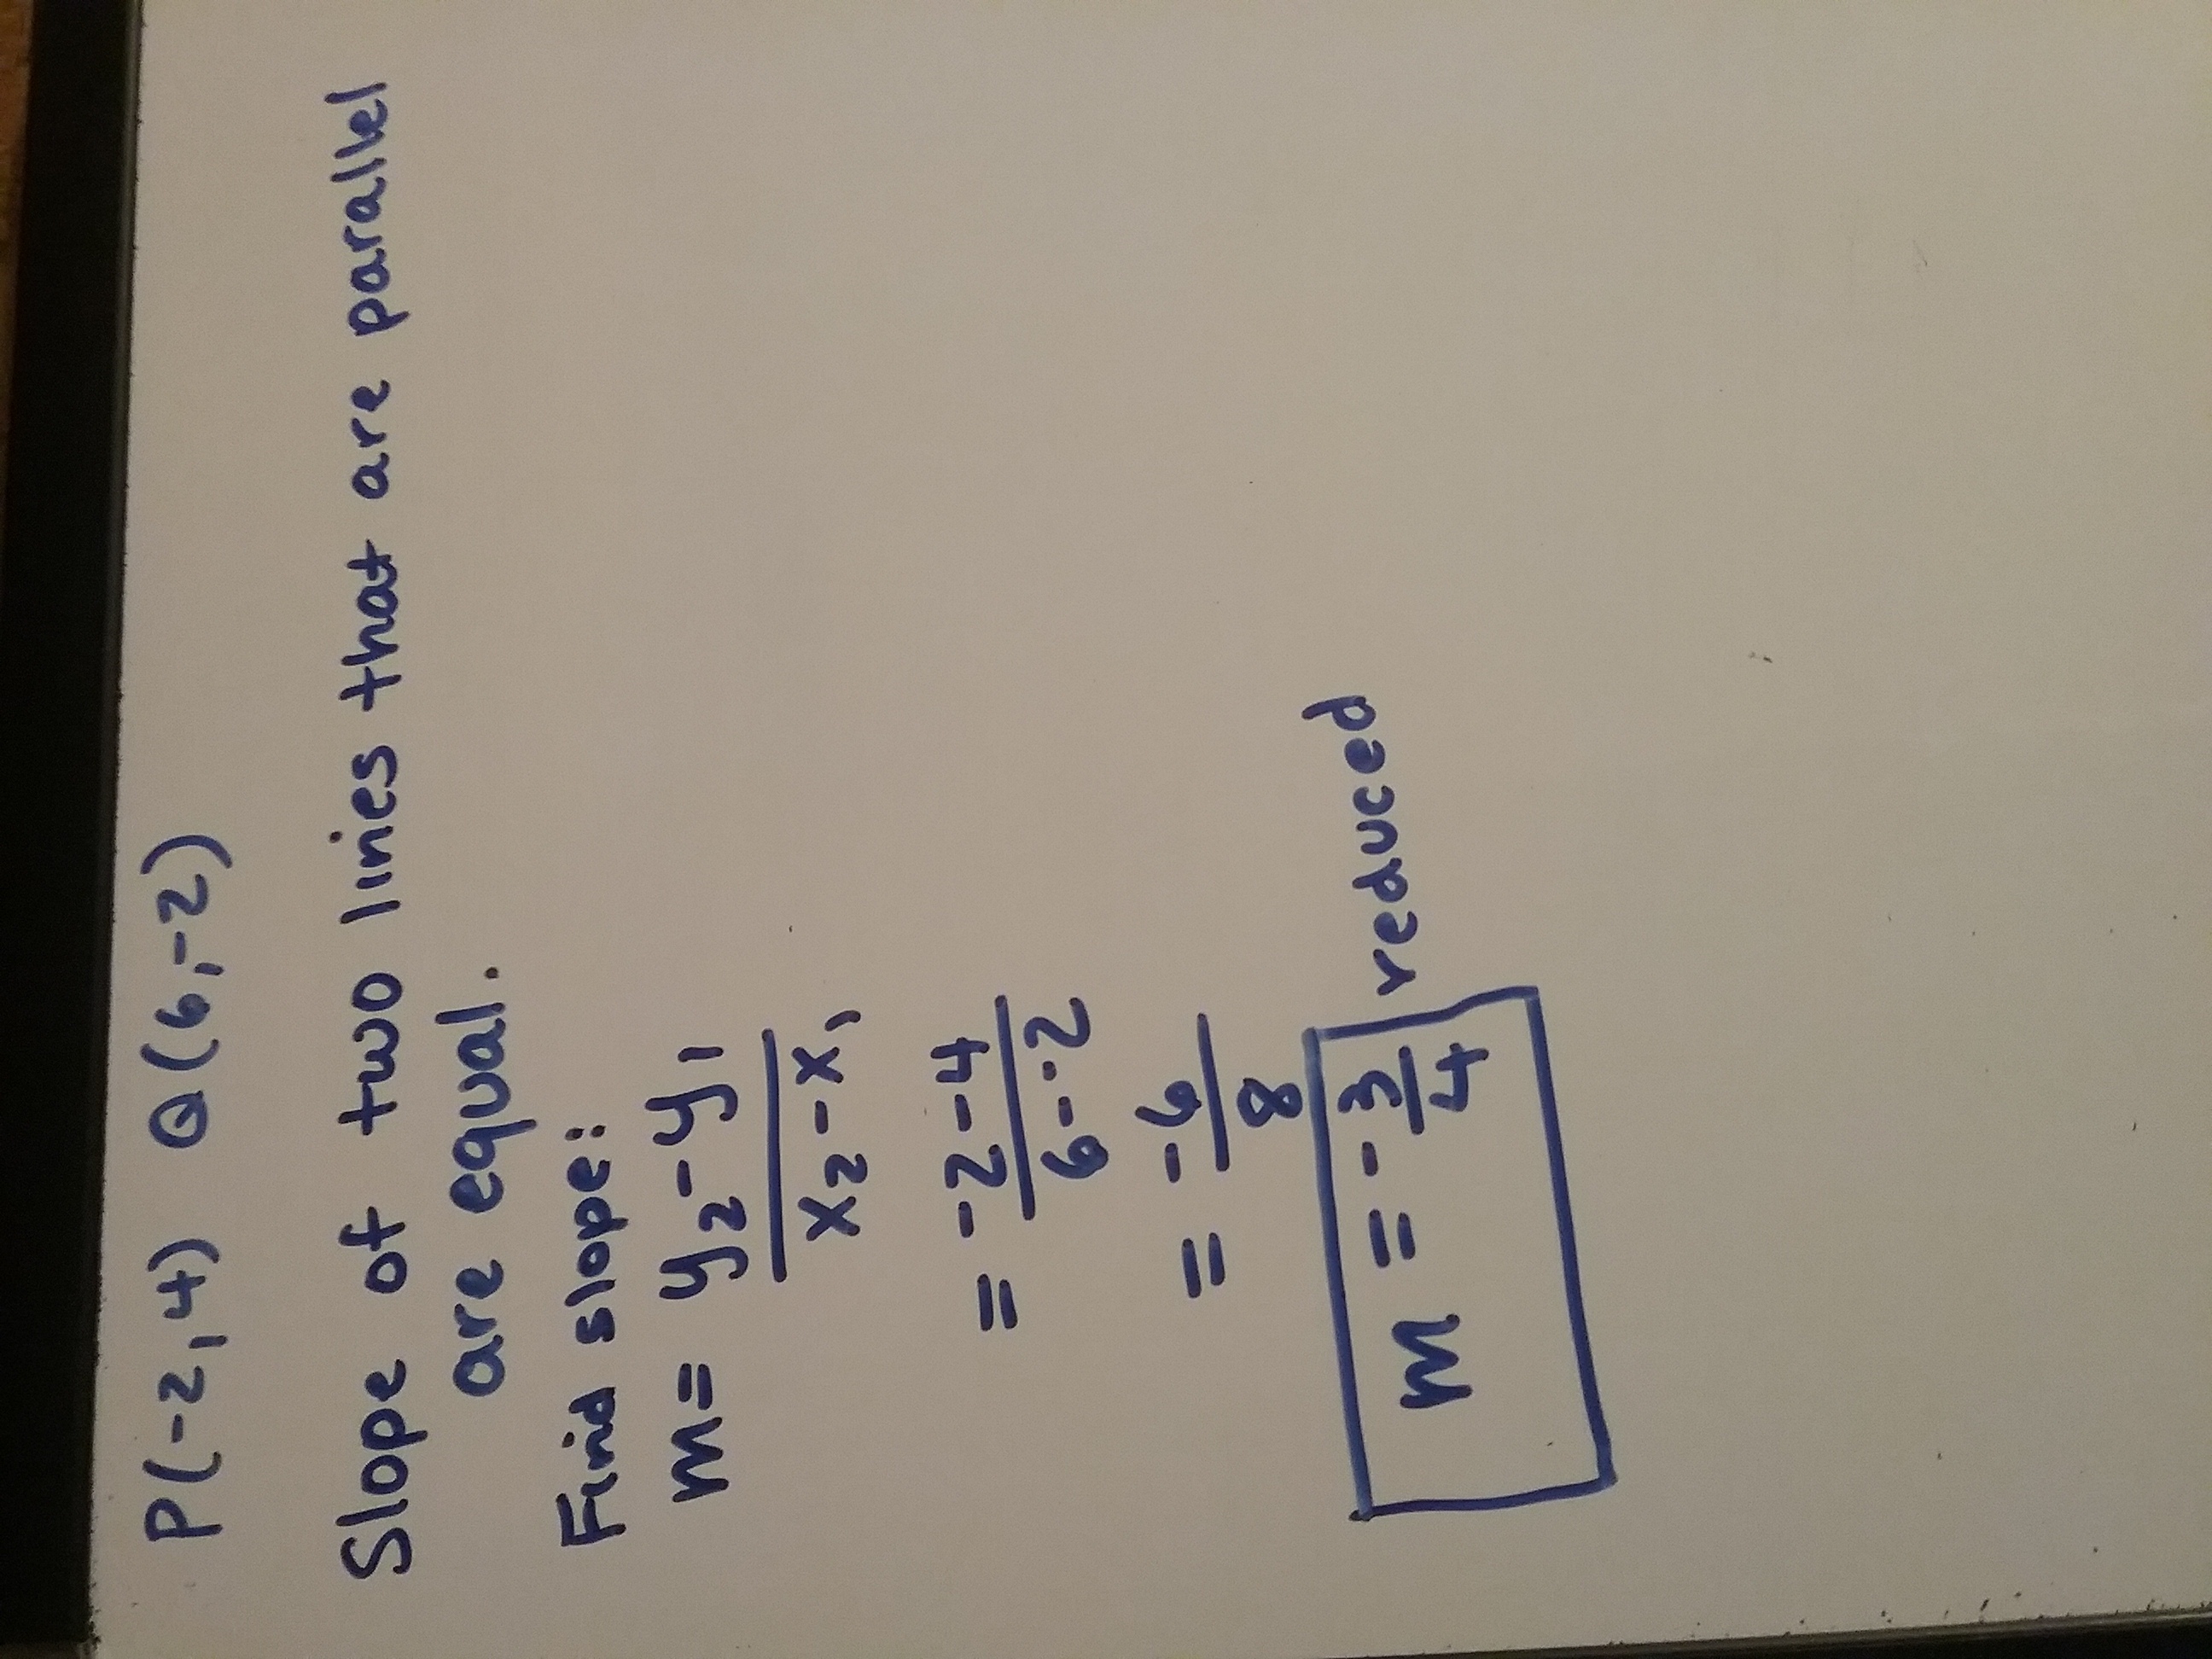 P(-2,4) Q(6,-2)
Slope of two lines that are parallel
are equal.
Find slope:
m = y₂-y₁
x₂-x₁
= -2-4
6--2
= -6
8
m = -3/4 reduced